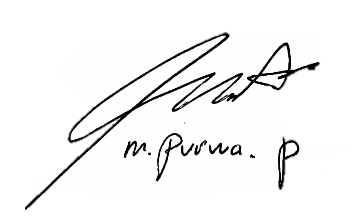 m. purwa. p